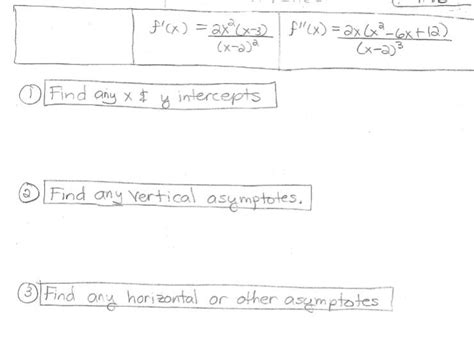 f'(x) = 2x²(x-3)/(x-2)² f''(x) = 2x(x²-6x+12)/(x-2)³
① Find any x & y intercepts
② Find any vertical asymptotes.
③ Find any horizontal or other asymptotes